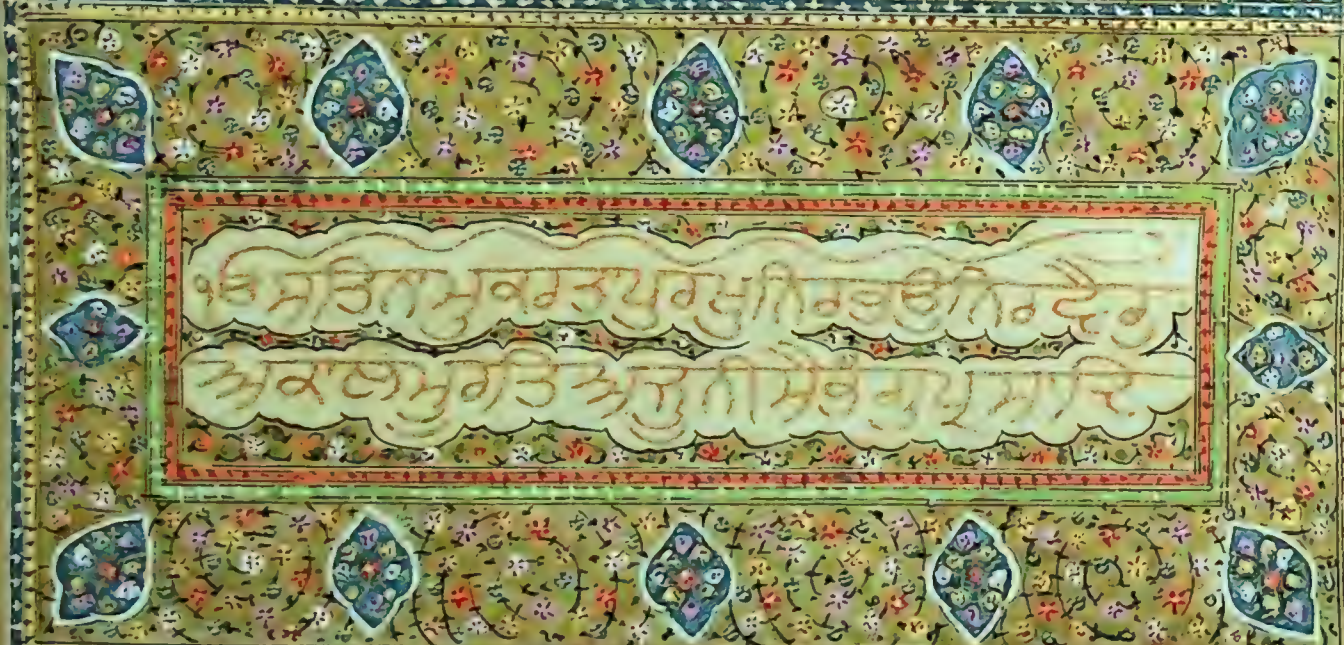 ੴਸਤਿਨਾਮੁਕਰਤਾਪੁਰਖੁਨਿਰਭਉਨਿਰਵੈਰੁ
ਅਕਾਲਮੂਰਤਿਅਜੂਨੀਸੈਭੰਗੁਪ੍ਰਸਾਦਿ